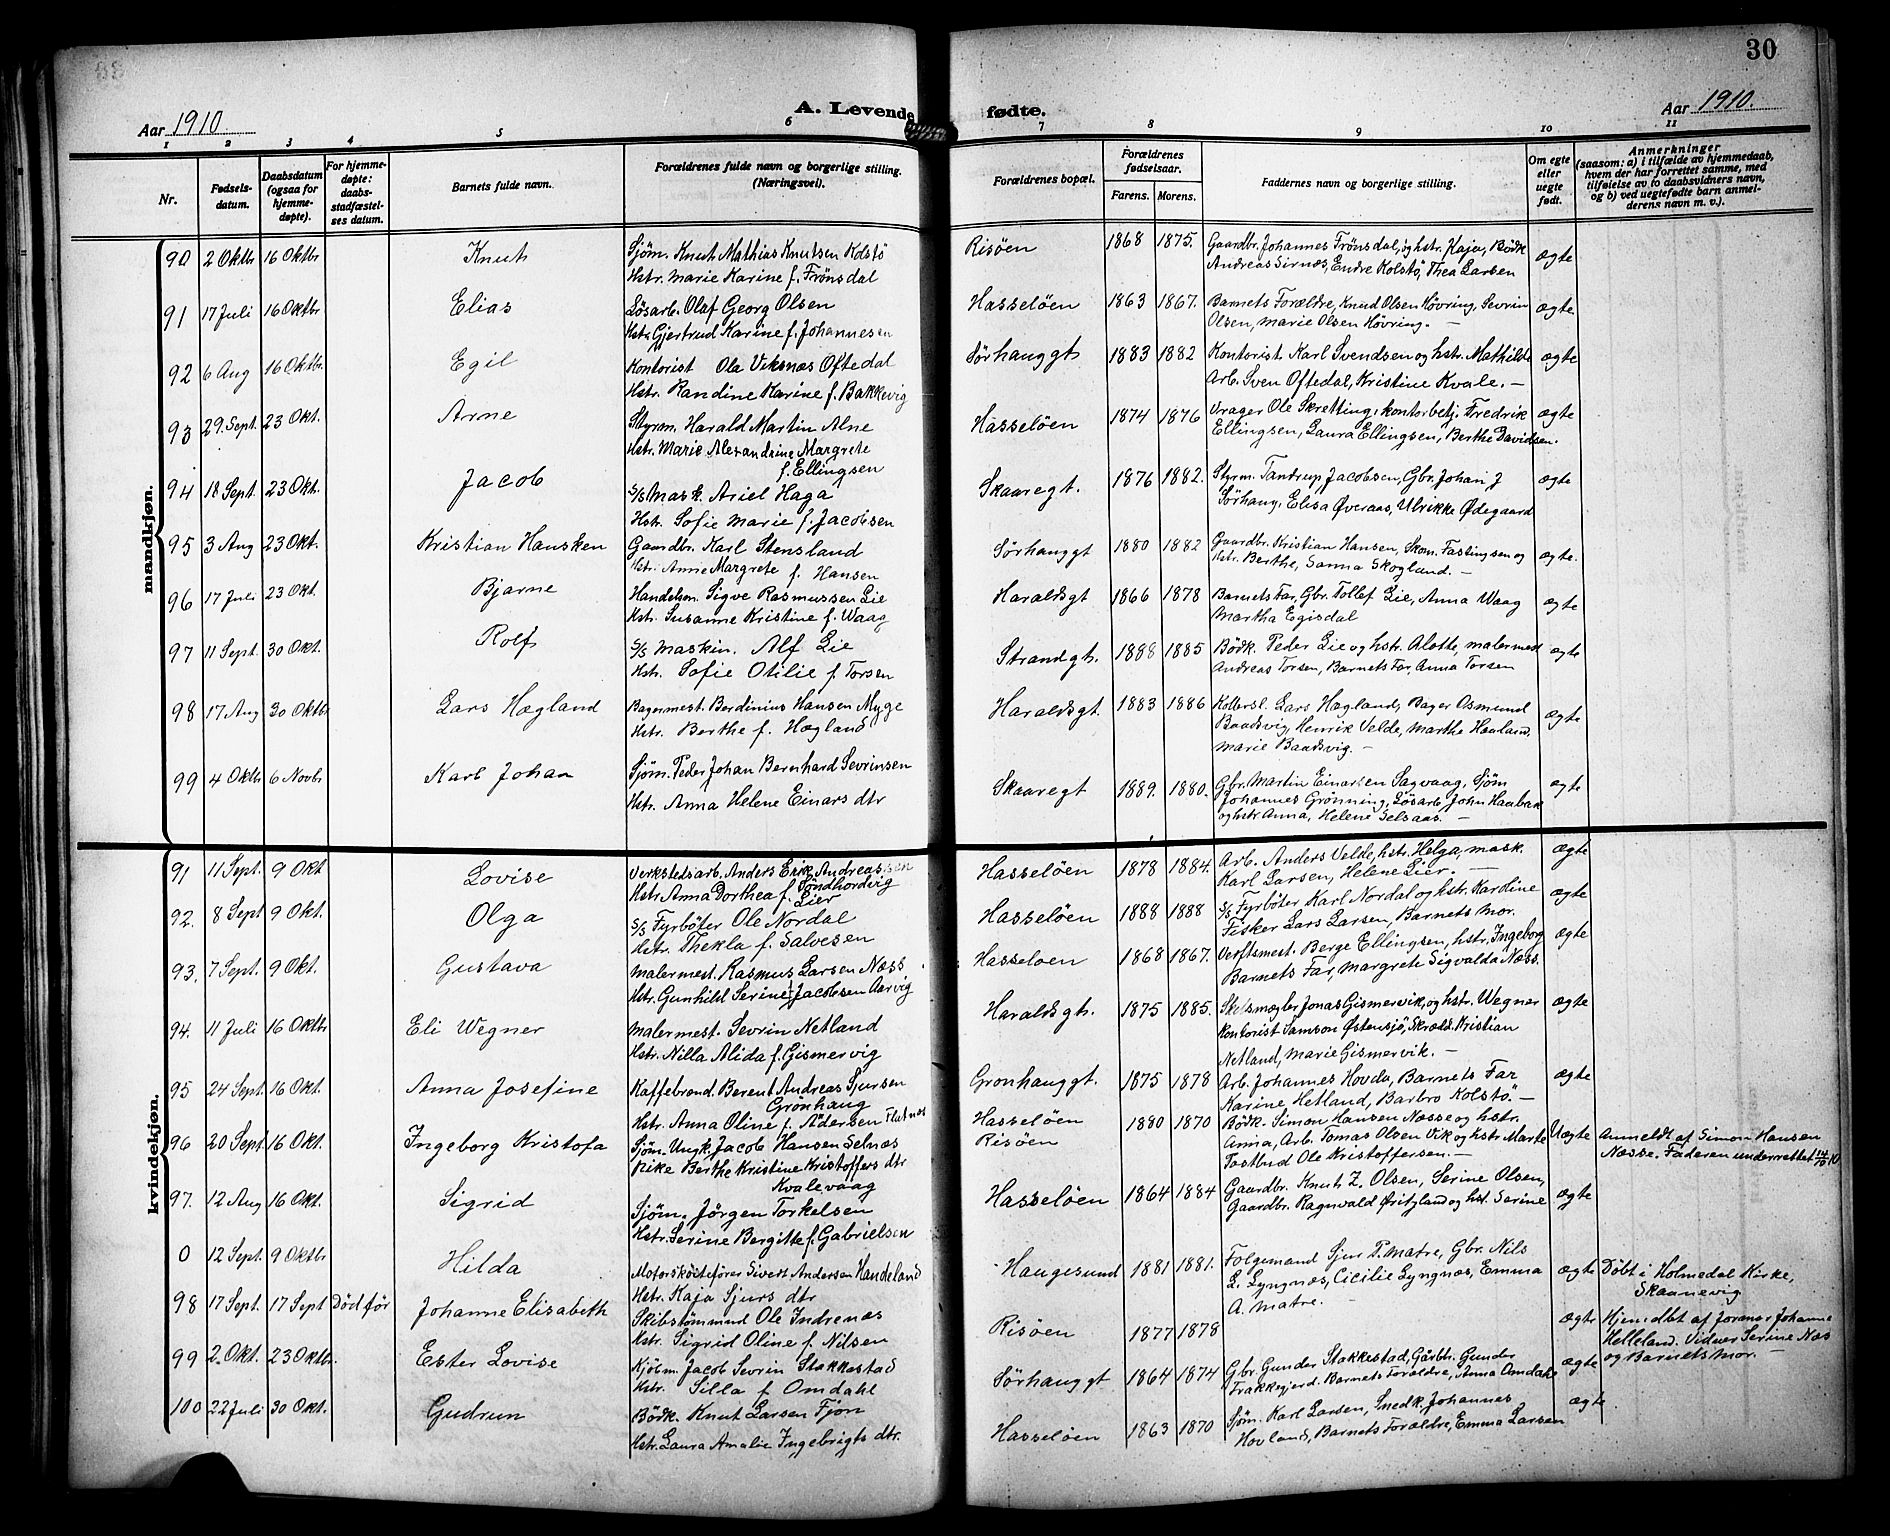 30
Aar 1910
A. Levende fødte.
Aar 1910.
1 2 3 4 5 6 7 8 9 10 11
Nr.
Fødsels-
datum.
Daabsdatum
(ogsaa for
hjemme-
døpte).
For hjemme-
døpte:
daabs-
stadfæstel-
ses datum.
Barnets fulde navn.
Forældrenes fulde navn og borgerlige stilling.
(Næringsvei).
Forældrenes bopæl.
Forældrenes
fødselsaar.
Farens. Morens.
Faddernes navn og borgerlige stilling.
Om egte
eller
uegte
født.
Anmerkninger
(saasom: a) i tilfælde av hjemmedaab,
hvem der har forrettet samme, med
tilføielse av to daabsvidners navn,
og b) ved uegtefødte barn anmel-
derens navn m. v.).
mandkjøn.
90 2 Oktbr 16 Oktbr Knut Sjøm. Knut Mathias Knutsen Kolstø Risøen 1868 1875. Gaardbr. Johannes Frønsdal, og hstr. Kaja, Bødk
Hstr. Marie Karine f. Frønsdal Andreas Sirnæs, Endre Kolstø, Thea Larsen ægte
91 17 Juli 16 Oktbr Elias Løsarb. Olaf Georg Olsen Hasseløen 1863 1867. Barnets Forældre, Knud Olsen Høvring, Sevrin ægte
Hstr Gjertrud Karine f. Johannesen Olsen, Marie Olsen Høvring. —
92 6 Aug 16 Oktbr. Egil Kontorist Ola Viksnæs Oftedal Sørhauggt 1883 1882 Kontorist. Karl Svendsen og hstr. Mathilde ægte
Hstr. Randine Karine f. Bakkevig Arb. Sven Oftedal, Kristine Kvale. —
93 29. Sept. 23 Okt. Arne Styrm. Harald Martin Alne Hasseløen 1874 1876 Vrager Ole Skretting, kontorbetj. Fredrik ægte
Hstr. Marie Alexandrine Margrete Ellingsen, Laura Ellingsen, Berthe Davidsen.
f. Ellingsen
94 18 Sept. 23 Okt. Jacob S/S Mask. Ariel Haga Skaaregt. 1876 1882. Styrm. Tandrup Jacobsen, Gbr. Johan J ægte
Hstr. Sofie Marie f. Jacobsen Sørhaug, Elisa Øveraas, Ulrikke Ødegaard
95 3 Aug 23 Okt. Kristian Hansken Gaardbr. Karl Stensland Sørhauggt 1880 1882 Gaardbr. Kristian Hansen, Skom. Fastingsen og ægte.
Hstr. Anne Margrete f. Hansen Hstr. Berthe, Sanna Skogland. —
96 17 Juli 23 Okt. Bjarne Handelsm. Sigve Rasmussen Lie Haraldsgt 1866 1878 Barnets Far, Gbr. Tollef Lie, Anna Waag ægte
Hstr. Susanne Kristine f. Waag Martha Egisdal
97 11 Sept. 30 Okt. Rolf S/S Maskin. Alf Lie Strandgt. 1888 1885 Bødk. Peder Lie og hstr. Alette, malermest ægte
Hstr. Sofie Otilie f. Torsen Andreas Torsen, Barnets Far, Anna Torsen
98 17 Aug 30 Oktbr Lars Hægland Bagermest. Berdinius Hansen Myge Haraldsgt 1883 1886 Lars Hægland, Bager Osmund ægte
Hstr. Berthe f. Hægland Baadsvig, Henrik Velde, Marthe Haaland,
Marie Baadsvig. —
99 4 Oktbr 6 Novbr Karl Johan Sjøm. Peder Johan Bernhard Sevrinsen Skaaregt 1889. 1880. Gbr. Martin Einarsen Sagvaag, Sjøm ægte
Hstr. Anna Helene Einars dtr Johannes Grønning, Løsarb. John Haabak
og hstr Anna, Helene Selsaas. —
kvindekjøn.
91 11 Sept. 9 Okt Lovise Verkstedsarb. Anders Erik Andreassen Hasseløen 1878 1884. Arb. Anders Velde, hstr. Helga, mask. ægte
Søndhordvig
Hstr. Anna Dorthea f. Lier Karl Larsen, Helene Lier. —
92. 8 Sept 9 Okt. Olga S/S Fyrbøter Ole Nordal Hasseløen 1888 1888 S/S Fyrbøter Karl Nordal og hstr. Karoline ægte
Hstr. Thekla f. Salvesen Fisker Lars Larsen, Barnets Mor.
93. 7 Sept. 9 Okt. Gustava Malermest. Rasmus Larsen Næss Hasseløen 1868 1867. Verftsmest. Berge Ellingsen, hstr. Ingeborg ægte
Hstr. Gunhild Serine f. Jacobsen Aarvig Barnets Far, Margrete Sigvalda Næss.
94. 11 Juli 16 Oktbr Eli Wegner Malermest. Sevrin Netland Haraldsgt. 1875 1885. Skibsmægler Jonas Gismervik, og hstr. Wegner ægte
Hstr. Nilla Alida f. Gismervig Kontorist Samson Østensjø, Skræd. Kristian
Netland, Marie Gismervik. —
95 24 Sept. 16 Okt. Anna Josefine Kaffebrænd. Berent Andreas Sjursen Grønhauggt. 1875 1878 Arb. Johannes Hovda, Barnets Far ægte
Grønhaug
Hstr. Anna Oline f. Pedersen Flatnes Karine Hetland, Barbro Kolstø. —
96 20 Sept. 16 Okt. Ingeborg Kristofa Sjøm. Ungk. Jacob Hansen Selnæs Hasseløen 1880 1870 Bødk. Simon Hansen Næsse og hstr. Uægte Anmeldt af Simon Hansen
Pike Berthe Kristine Kristoffers dtr Risøen Anna, Arb. Tomas Olsen Vik og hstr. Marte Næsse. Faderen underrettet 14/10 10
Kvalevaag Postbud Ole Kristoffersen. —
97. 12 Aug 16 Okt. Sigrid Sjøm. Jørgen Torkelsen Hasseløen 1864 1884 Gaardbr. Knut Z. Olsen, Serine Olsen, ægte
Hstr. Serine Bergitte f. Gabrielsen Gaardbr. Ragnvald og hst. Serine
0 12 Sept. 9 Oktbr Hilda Motorskøitefører Sivert Andersen Handeland Haugesund 1881 1881. Følgemand Sjur P. Matre, Gbr. Nils ægte Døbt i Holmedal Kirke,
Hstr. Kaja Sjurs dtr L. Lyngnæs, Cicilie Lyngnæs, Emma Skaanevig
A. Matre. —
98 17 Sept. 17 Sept Død før Johanne Elisabeth Skibstømmmd Ole Indrenæs Risøen 1877 1878 ægte Hjemdbt af Jormor Johanne
Hstr. Sigrid Oline f. Nilsen Helleland. Vidner Serine Næs
og Barnets Mor. —
99 2. Okt. 23 Oktbr. Ester Lovise Kjøbm. Jacob Sevrin Stakkestad Sørhauggt 1864 1874 Gbr. Gunder Stakkestad, Gårbr. Gunder ægte
Hstr. Silla f. Omdahl Frakkegjerd. Barnets Forældre, Anna Omdahl
100 22 Juli 30 Okt. Gudrun Bødk. Knut Larsen Fjon Hasseløen 1863 1870 Sjøm. Karl Larsen, Snedk. Johannes ægte
Hstr. Laura Amalie Ingebrigts dtr. Hovland, Barnets Forældre, Emma Larsen